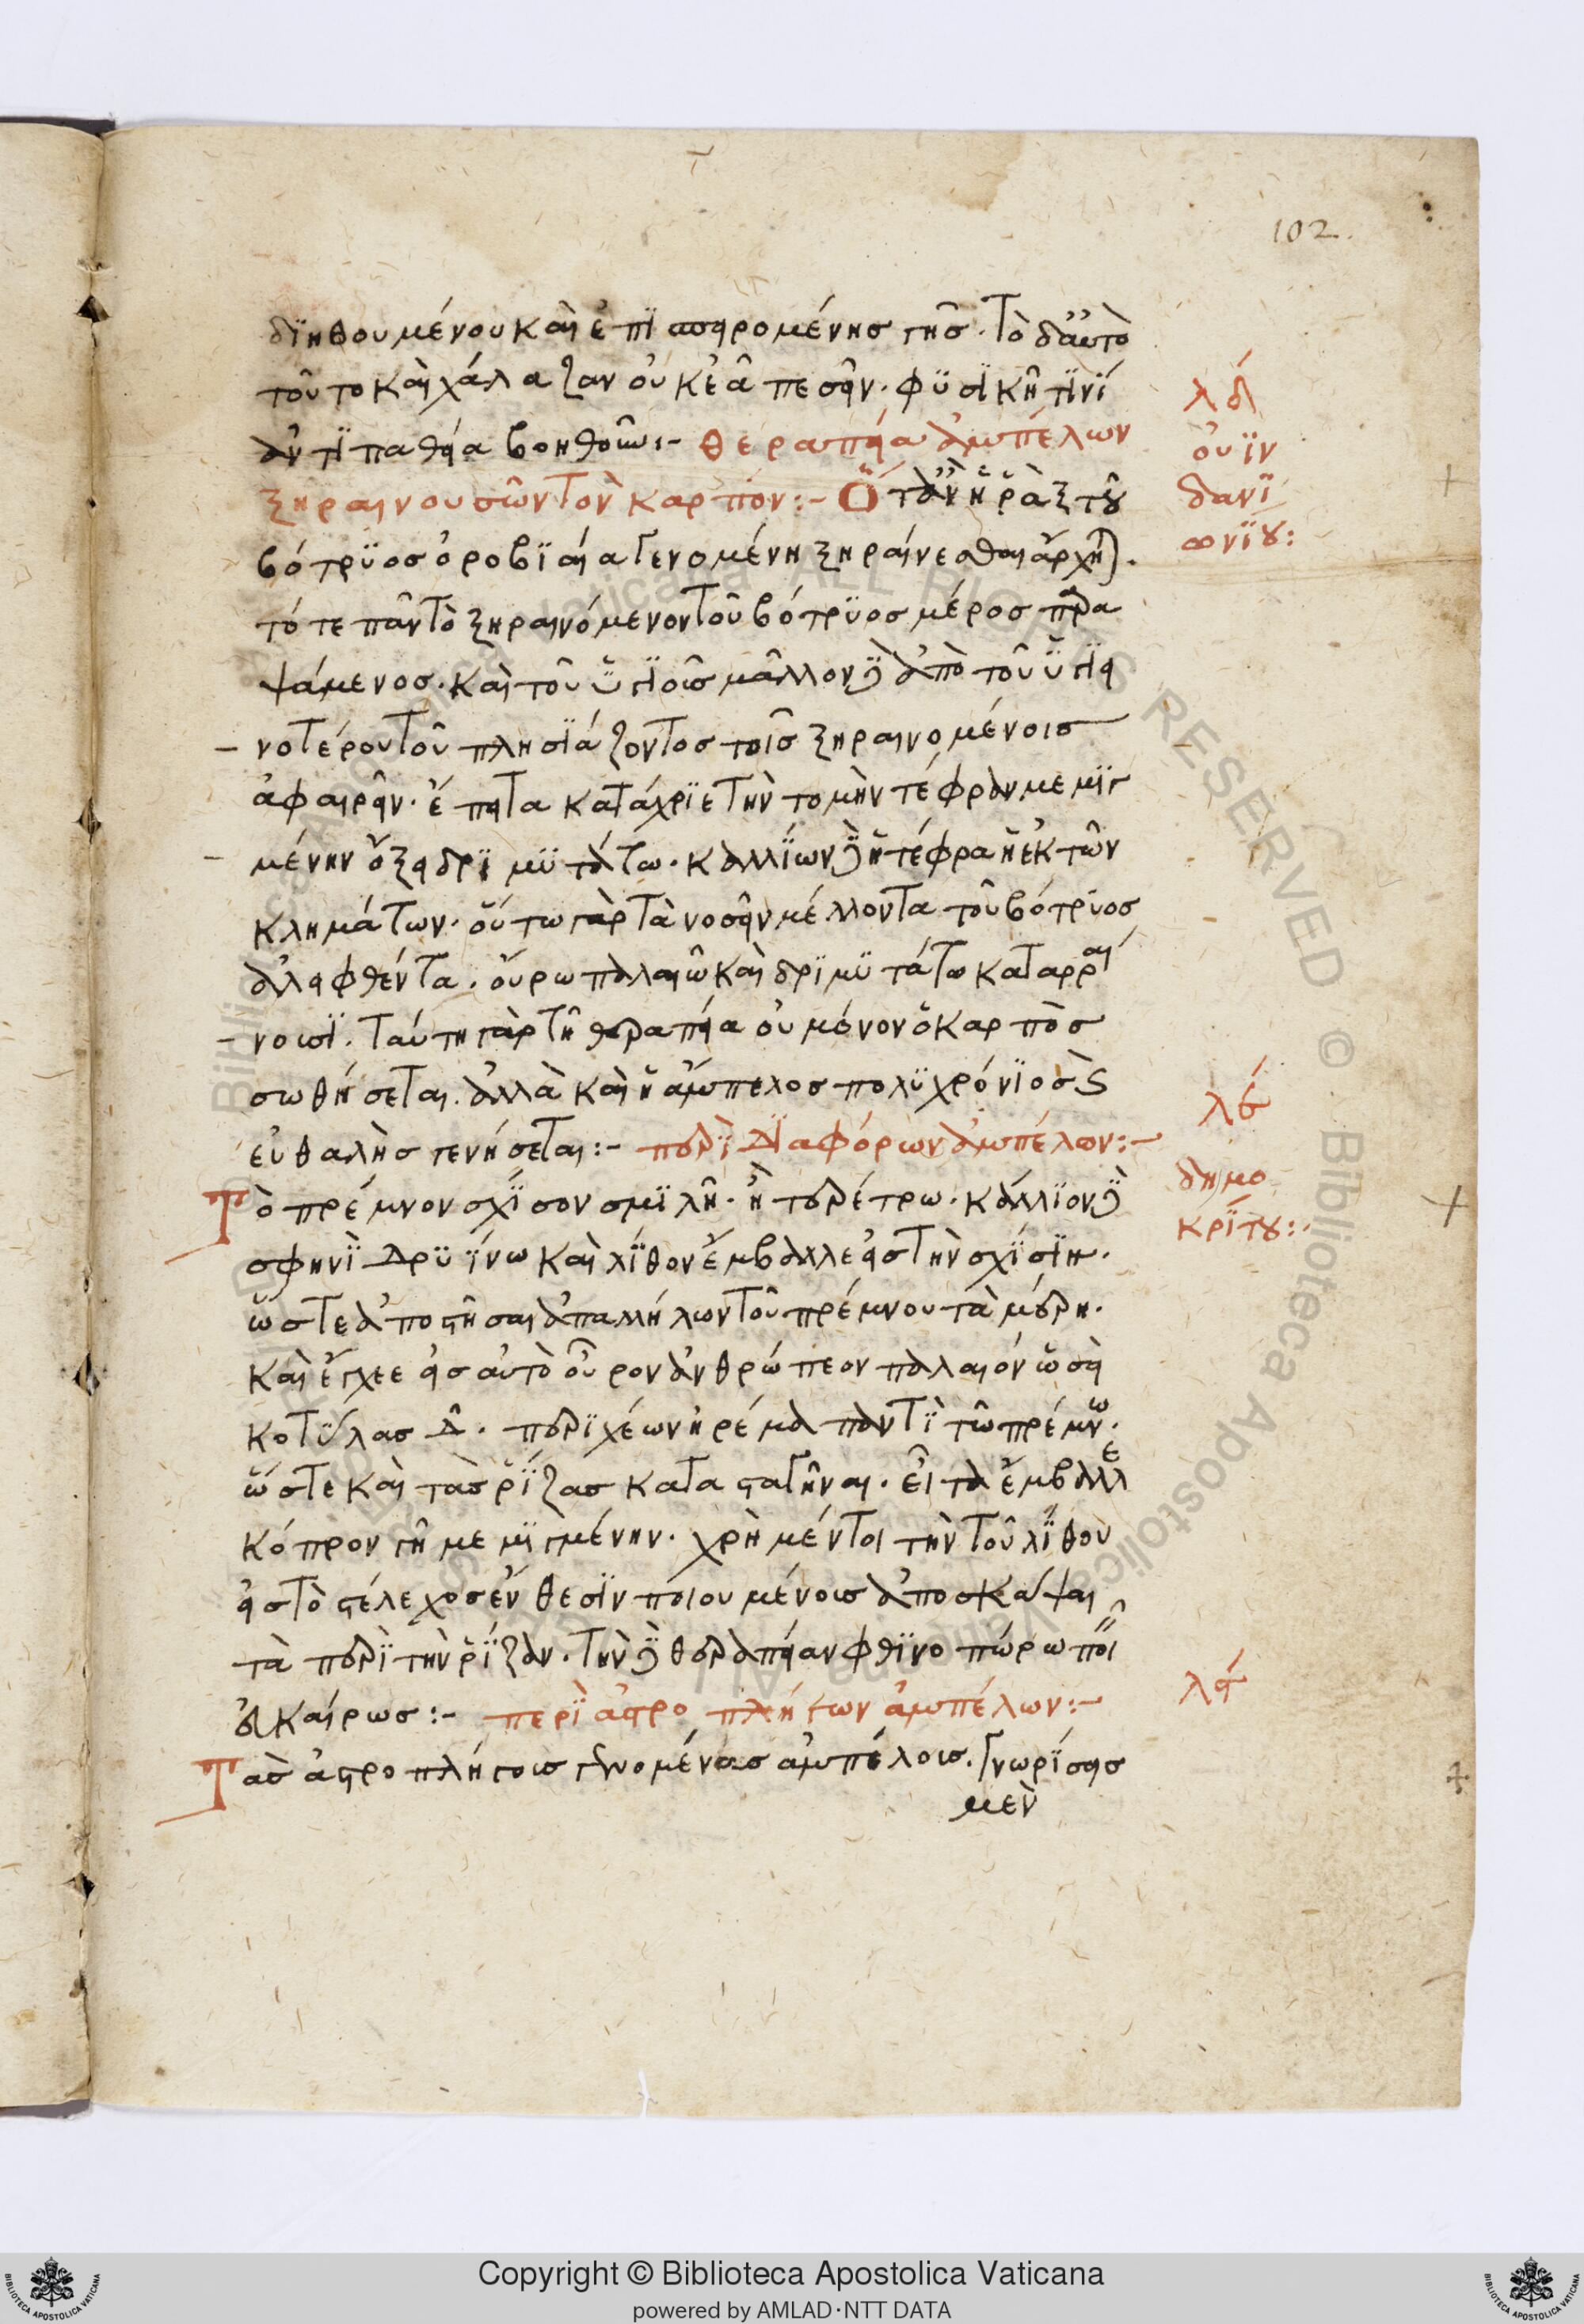 102.
διηθουμένου καὶ ἐπισπειρομένης γῆς. Τὸ δ' αὐτὸ
τοῦτο καὶ χάλαζαν οὐκ ἐᾶ πεσεῖν. φυσικῆ τινί
ἀντιπαθεία βοηθοῦν:- θεραπεία ἀμπέλων
ξηραινουσῶν τὸν καρπόν:- Ὅταν ἡ ῥὰξ τοῦ
βότρυος ὀροβιαία γενομένη ξηραίνεσθαι ἄρχηται.
τότε πᾶν τὸ ξηραινόμενον τοῦ βότρυος μέρος περια
ψάμενος. καὶ τοῦ ὑγιοῦς μᾶλλον δὲ ἀπὸ τοῦ ὑγιει
νοτέρου τοῦ πλησιάζοντος τοῖς ξηραινομένοις
ἀφαιρεῖν. ἔπειτα κατάχριε τὴν τομὴν τέφραν μεμιγ
μένην ὄξει δριμυτάτω. καλλίων δὲ ἡ τέφρα ἡ ἐκ τῶν
κλημάτων. οὕτω γὰρ τὰ νοσεῖν μέλλοντα τοῦ βότρυος
ἀλειφθέντα. οὔρω παλαιῶ καὶ δριμυτάτω καταρραί
νουσι. Ταύτη γὰρ τῆ θεραπεία οὐ μόνον ὁ καρπὸς
σωθήσεται. ἀλλὰ καὶ ἡ ἄμπελος πολυχρόνιος καὶ
εὐθαλὴς γενήσεται:- περὶ διαφόρων ἀμπέλων:-
Τὸ πρέμνον σχίσον σμίλη. ἢ τερέτρω. κάλλιον δὲ
σφηνὶ δρυΐνω καὶ λίθον ἔμβαλλε εἰς τὴν σχίσιν.
ὥστε ἀποστῆσαι ἀπαλλήλων τοῦ πρέμνου τὰ μέρη.
καὶ ἔγχεε εἰς αὐτὸ οὖρον ἀνθρώπεον παλαιόν ὡσεὶ
κοτύλας δ. περιχέων ἠρέμα παντὶ τῶ πρέμνω.
ὥστε καὶ τὰς ῥίζας καταστατῆναι. εἶτα ἔμβαλλε
κόπρον γῆ μεμιγμένην. χρὴ μέντοι τὴν τοῦ λίθου
εἰς τὸ στέλεχος ἔνθεσιν ποιουμένοις ἀποσκάψαι
τὰ περὶ τὴν ῥίζαν. τὴν δὲ θεραπείαν φθινοπώρω ποιεῖ
εὐκαίρως:- περὶ ἀστροπλήγων ἀμπέλων:-
Τὰς ἀστροπλήγους γινομένας ἀμπέλους. Γνωρίσεις
μὲν
λδ
οὐϊν
δανι
ωνίου:
λε
δημο
κρίτου:.
λς